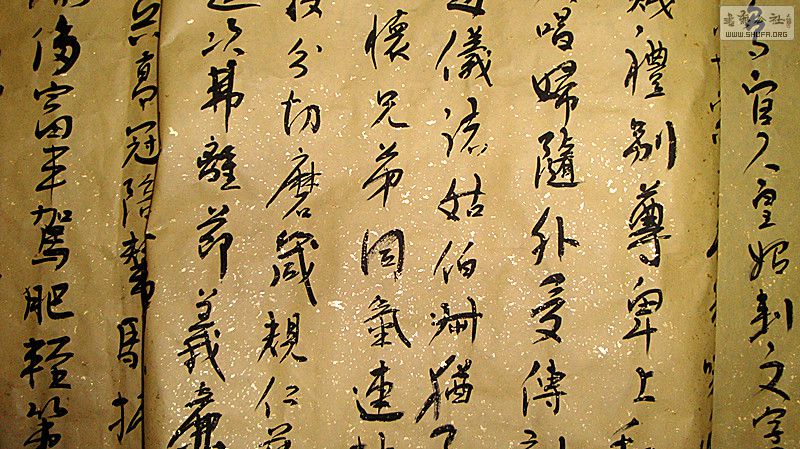 書法公社
WWW.SHUFA.ORG
官人皇始制文字
賤禮別尊卑上
唱婦隨外受傅
儀諸姑伯叔猶子
懷兄弟同氣連枝
投分切磨箴規仁慈
造次弗離節義廉
兵高冠陪輦驅
侈富車駕肥輕策